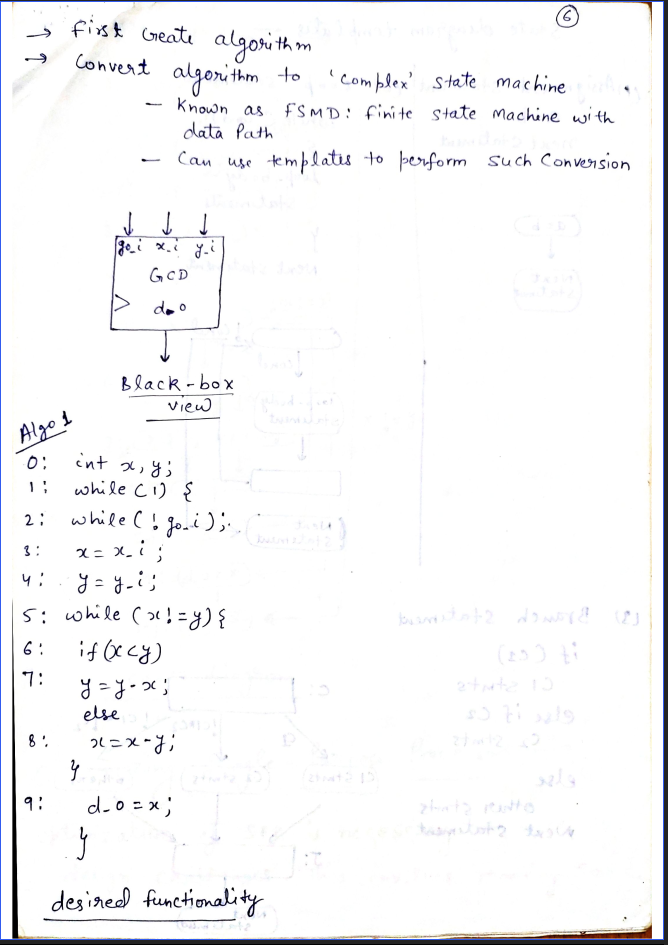 6
→ First Create algorithm
→ Convert algorithm to 'complex' state machine
— Known as FSMD: finite state Machine with
data Path
— Can use templates to perform such Conversion
go_i x_i y_i
GCD
d_o
Black-box
view
Algo 1
0: int x, y;
1: while (1) {
2: while (!go_i);
3: x = x_i ;
4: y = y_i ;
5: while (x != y) {
6: if (x < y)
7: y = y - x ;
else
8: x = x - y ;
}
9: d_o = x ;
}
desired functionality